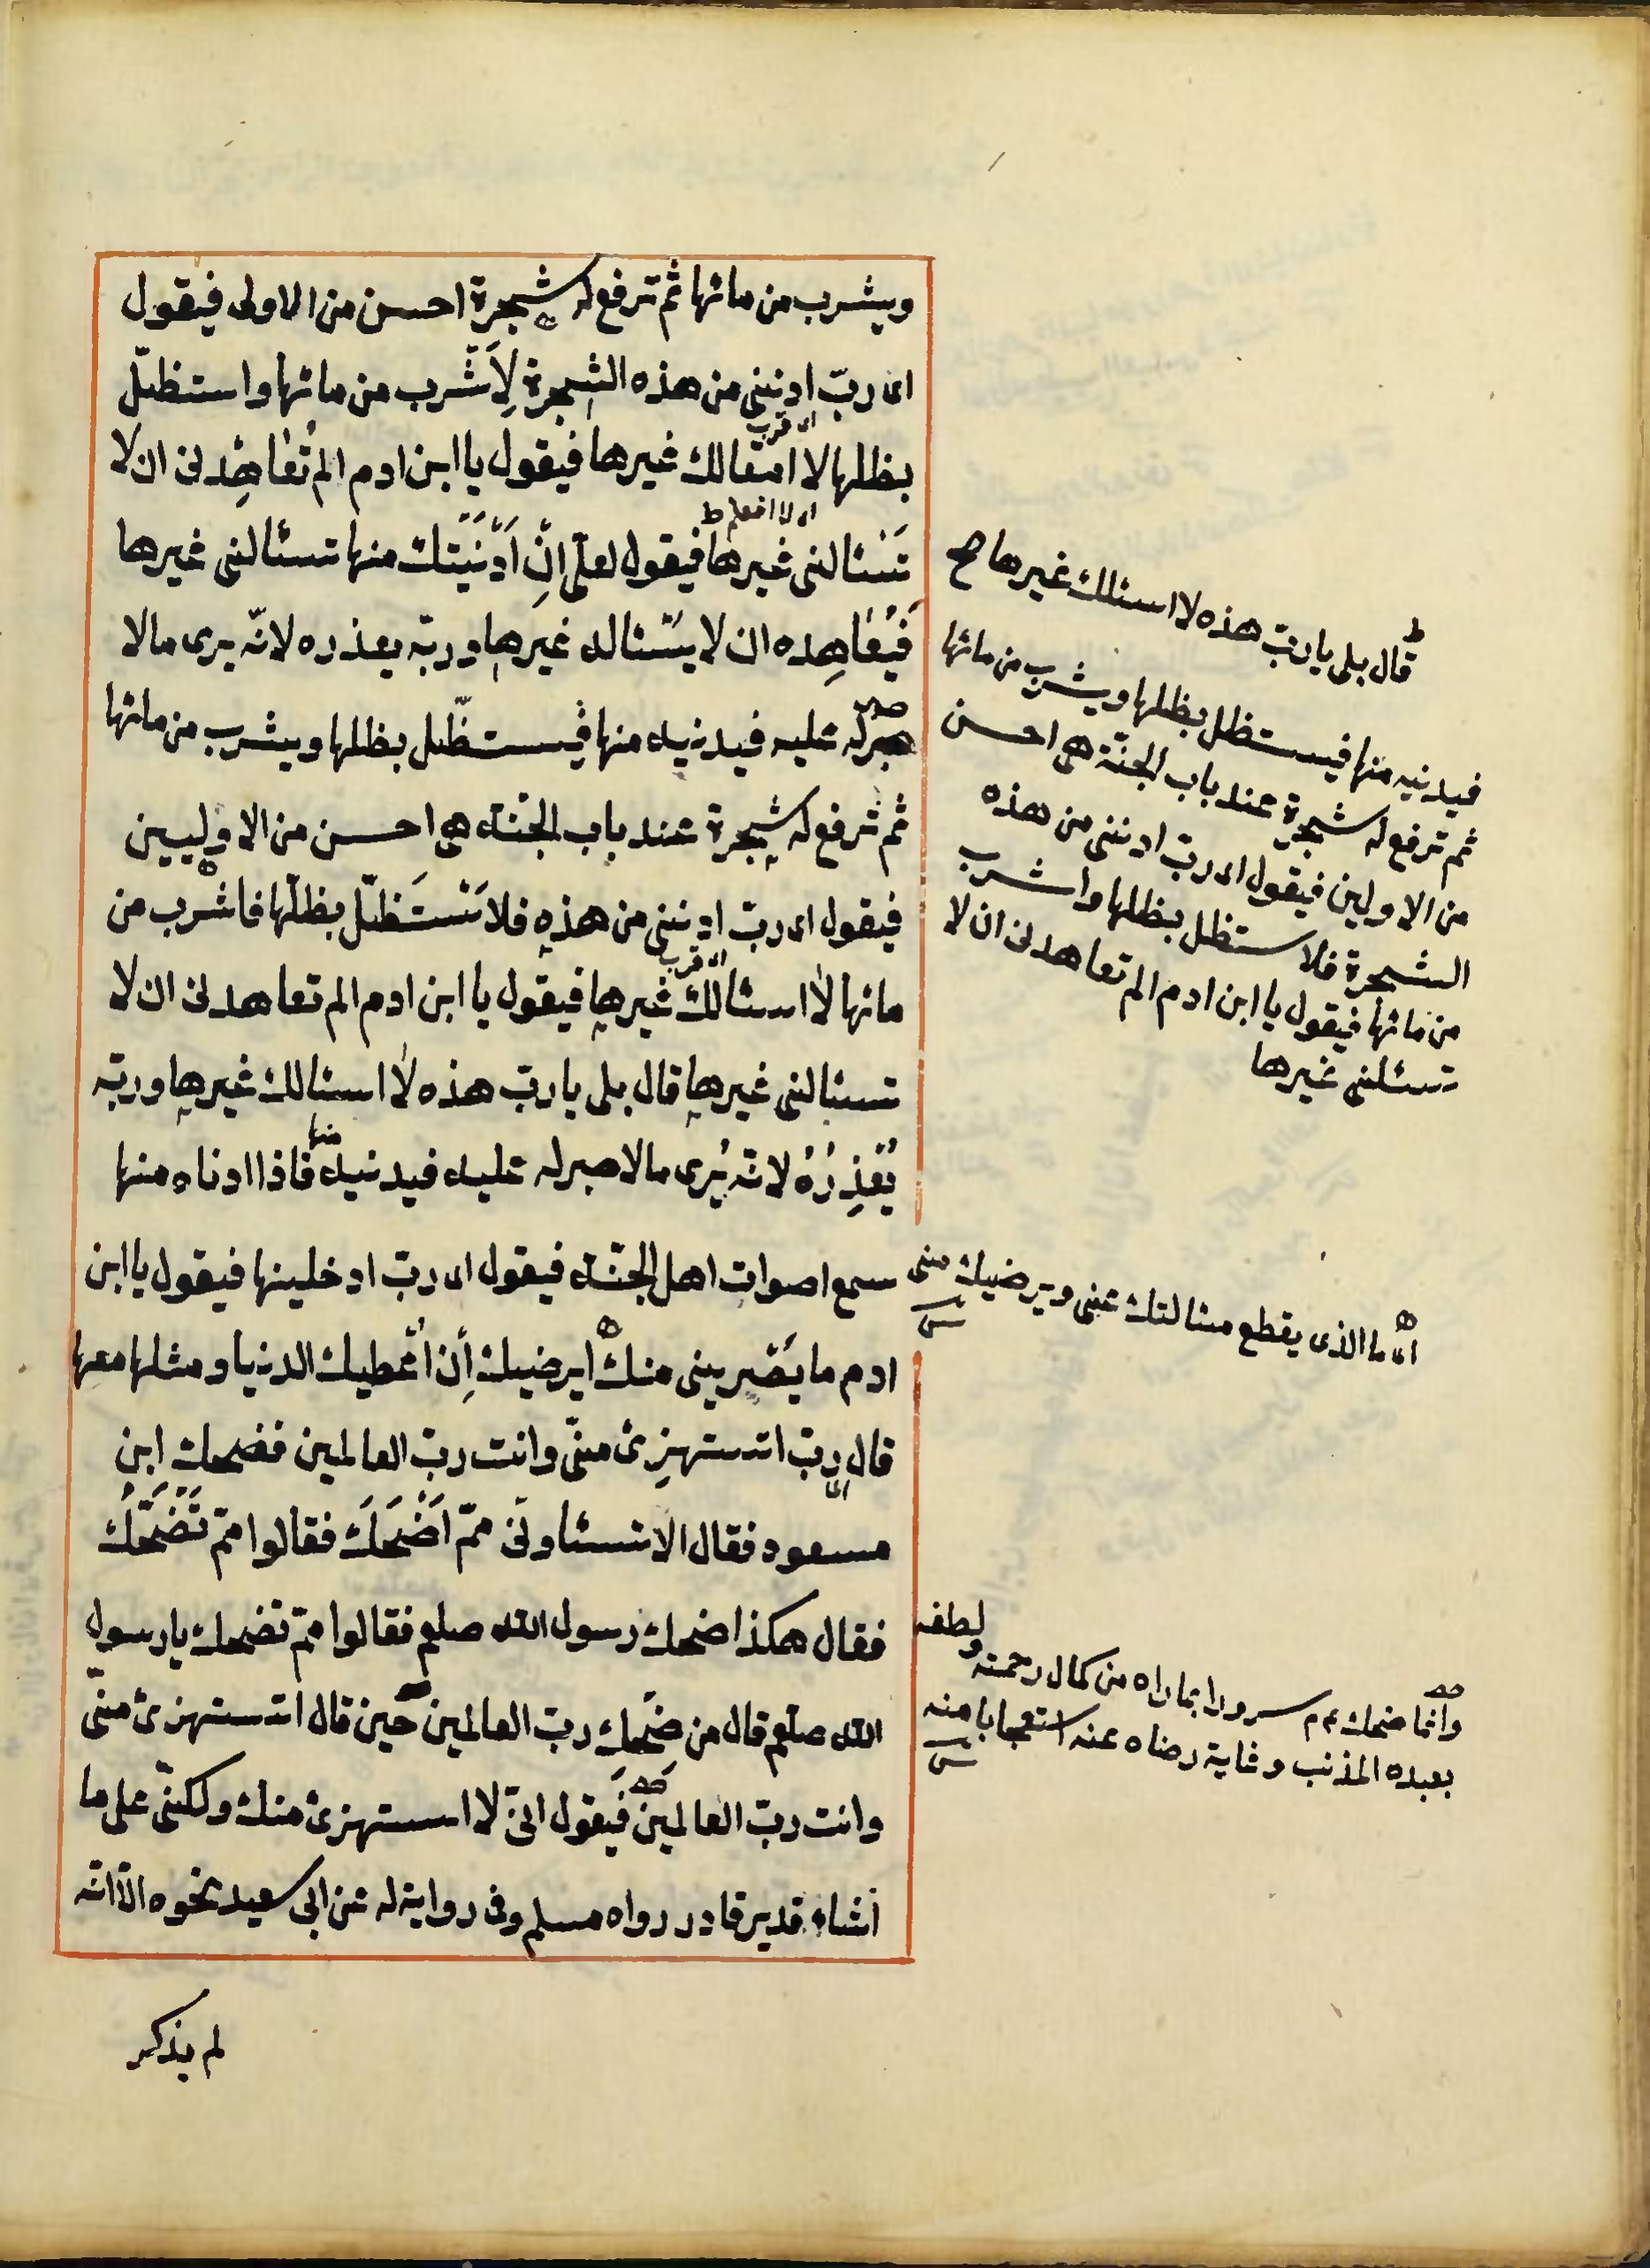 ويشرب من مائها ثم ترفع له شجرة احسن من الاولى فيقول
اى ربّ ادننى من هذه الشجرة لِاَشْرب من مائها واستظلّ
بظلها لا اسئالك غيرها فيقول يا ابن ادم الم تُعاهِدنى ان لا
اى قرب
تَسْئالنى غيرها فيقول لعلّى اِنْ اَدْنَيْتك منها تسئالنى غيرها
اى لا افعل ط
فَيُعاهِده ان لا يَسْئاله غيرها وربّه يعذره لانّه يرى مالا
صبر له عليه فيدنيه منها فيستظّل بظلها ويشرب من مائها
ثم ترفع له شجرة عند باب الجنة هى احسن من الاوليين
فيقول اى ربّ ادننى من هذهِ فلاَسْتَظلّ بظلّها فاشرب من
مائها لا اسئالك غيرها فيقول يا ابن ادم الم تعاهدنى ان لا
اى قرب
تسئالنى غيرها قال بلى يا ربّ هذه لا اسئالك غيرها وربّه
يُعْذِرُهُ لانه يُرى مالا صبر له عليه فيدنيه منها فاذا ادناه منها
سمع اصوات اهل الجنّة فيقول اى ربّ ادخلينها فيقول يا ابن
ادم ما يَصْرِينى منك ايرضيك أن اُعْطيك الدنيا ومثلها معها
قال اى ربّ اتستهزِئ منّى وانت ربّ العالمين فضحك ابن
مسعود فقال الا تسئاونى ممّ اَضْحَكَ فقالوا ممّ تَضْحَكُ
فقال هكذا ضحك رسول الله صلعم فقالوا ممّ تضحك يا رسول
الله صلعم قال من ضحك ربّ العالمين حين قال اتستهزئ منّى
وانت ربّ العالمين فَيَقول انّى لا استهزئ منك ولكنّى على ما
اشاء قدير قادر رواه مسلم وفى رواية له عن ابى سعيد نحوه الا انه
لم يذكر
قال بلى يا ربّ هذه لا اسئلك غيرها صح
فيدنيه منها فيستظل بظلها ويشرب من مائها
ثم ترفع له شجرة عند باب الجنّة هى احسن
من الاولين فيقول اى ربّ ادننى من هذه
الشجرة فلاستظل بظلها واشرب
من مائها فيقول يا ابن ادم الم تعاهدنى ان لا
تسئلنى غيرها
اى ما الذى يقطع مسئالتك عنى ويرضيك منى
وانما ضحك عم سرورا بما راه من كمال رحمته ولطفه
بعبده المذنب وغاية رضاه عنه استعجابا منه